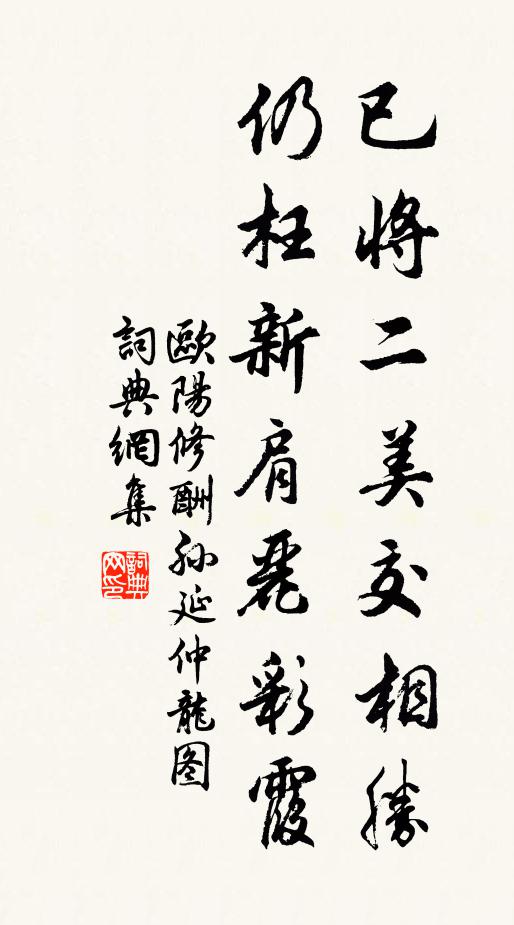 已將二美交相勝
仍枉新肩麗彩霞
歐陽修酬孙延仲龍图
詞典網集
詞典网印